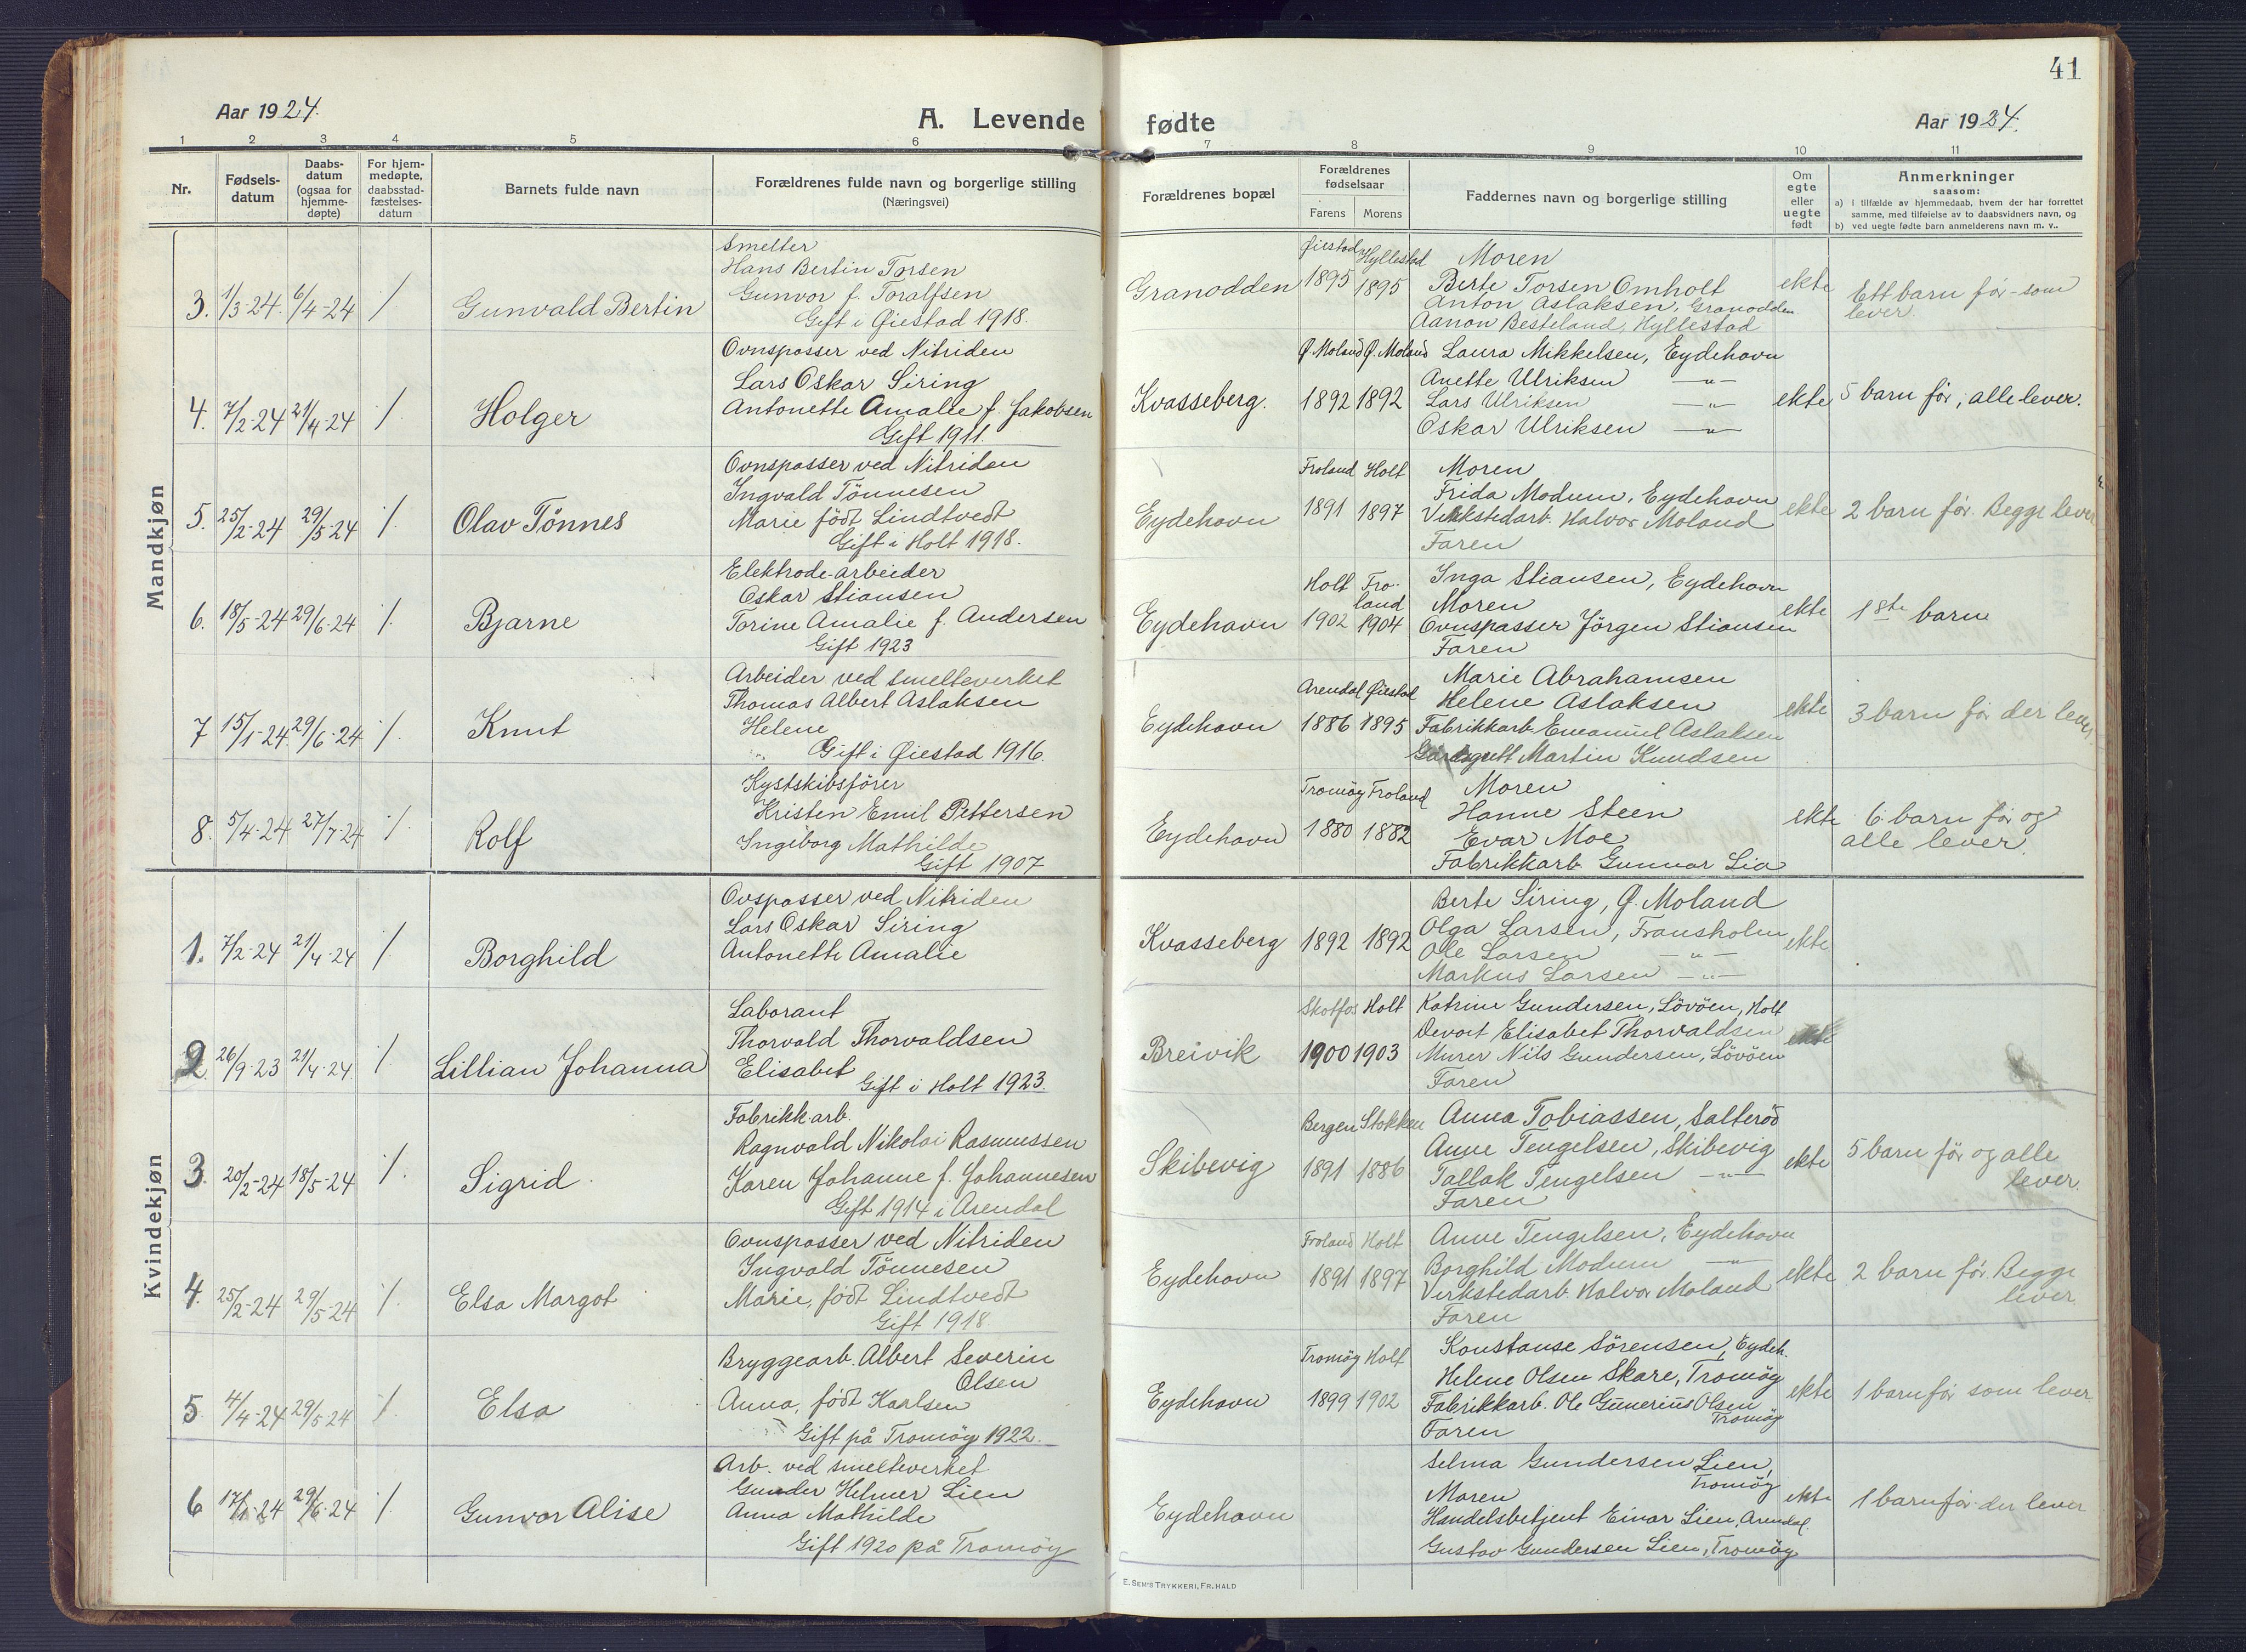 41
Aar 1924.
A. Levende
fødte
Aar 1924.
1 2 3 4 5 6 7 8 9 10 11
Nr.
Fødsels-
datum
Daabs-
datum
(ogsaa for
hjemme-
døpte)
For hjem-
medøpte,
daabsstad-
fæstelses-
datum
Barnets fulde navn
Forældrenes fulde navn og borgerlige stilling
(Næringsvei)
Forældrenes bopæl
Forældrenes
fødselsaar
Farens Morens
Faddernes navn og borgerlige stilling
Om
egte
eller
uegte
født
Anmerkninger
saasom:
a) i tilfælde av hjemmedaab, hvem der har forrettet
samme, med tilføielse av to daabsvidners navn, og
b) ved uegte fødte barn anmelderens navn m. v..
Mandkjøn
3. 1/3-24. 6/4-24 /
Gunvald Bertin
Smelter
Hans Bertin Torsen
Gunvor f. Toralfsen
Gift i Øiestad 1918.
Granodden
Øiestad Hyllestad
1895 1895
Moren
Berte Torsen Omholt
Anton Aslaksen, Granodden
Aanon Besteland, Hyllestad
ekte
Ett barn før - som
lever.
4. 7/2-24 21/4-24 /.
Holger
Ovnspasser ved Nitriden
Lars Oskar Siring
Antonette Amalie f. Jakobsen
Gift 1911.
Kvasseberg.
Ø. Moland Ø. Moland
1892 1892
Laura Mikkelsen, Eydehavn
Anette Ulriksen —"—
Lars Ulriksen —"—
Oskar Ulriksen —"—
ekte
5 barn før, alle lever.
5. 25/2-24 29/5-24 /.
Olav Tönnes
Ovnspasser ved Nitriden
Ingvald Tönnesen
Marie födt Lindtvedt
Gift i Holt 1918.
Eydehavn
Froland Holt
1891 1897
Moren
Frida Modum, Eydehavn
Verkstedarb. Halvor Moland
Faren
ekte
2 barn før. Begge lever
6. 18/5-24 29/6-24 /.
Bjarne
Elektrode-arbeider
Oskar Stiansen
Torine Amalie f. Andersen
Gift 1923
Eydehavn
Holt Fro-
land
1902 1904
Inga Stiansen, Eydehavn
Moren
Ovnspasser Jörgen Stiansen
Faren
ekte
1ste barn
7 15/1-24. 29/6-24 /.
Knut
Arbeider ved smelteverket
Thomas Albert Aslaksen
Helene
Gift i Øiestad 1916.
Eydehavn
Arendal Øiestad
1886 1895
Marie Abrahamsen
Helene Aslaksen
Fabrikkarb. Emanuel Aslaksen
Martin Knudsen
ekte
3 barn før der lever.
8. 5/4-24 27/7-24 /.
Rolf
Kystskibsförer
Kristen Emil Pettersen
Ingeborg Mathilde
Gift 1907
Eydehavn
Tromöy Froland
1880 1882
Moren
Hanne Steen
Evar Moe
Fabrikkarb Gunnar Lia
ekte
6 barn før og
alle lever.
Kvindekjøn
1. 7/2-24 21/4-24 /.
Borghild
Ovspasser ved Nitriden
Lars Oskar Siring
Antonette Amalie
Kvasseberg
1892 1892
Berte Siring, Ø. Moland
Olga Larsen, Fransholm
Ole Larsen —"—
Markus Larsen —"—
ekte
2. 26/9-23 21/4-24. /
Lillian Johanna
Laborant
Thorvald Thorvaldsen
Elisabet
Gift i Holt 1923.
Breivik
Skotfos Holt
1900 1903
Katrine Gundersen, Lövöen, Holt
Elisabet Thorvaldsen
Murer Nils Gundersen, Lövöen
Faren
ekte
3. 20/2-24 18/5-24 /.
Sigrid
Fabrikk.arb.
Ragnvald Nikolai Rasmussen
Karen Johanne f. Johannesen
Gift 1914 i Arendal
Skibevig
Bergen Stokken
1891 1886
Anna Tobiassen, Salteröd
Anne Tengelsen, Skibevig
Tallak Tengelsen —"—
Faren
ekte
5 barn før og alle
lever.
4. 25/2-24 29/5-24 /.
Elsa Margot
Ovnspasser ved Nitriden
Ingvald Tönnesen
Marie, födt Lindtvedt
Gift 1918
Eydehavn
Froland Holt
1891 1897
Anne Tengelsen, Eydehavn
Borghild Modum —"—
Verkstedarb. Halvor Moland
Faren
ekte
2 barn før. Begge
lever.
5 4/4-24 29/5-24 /.
Elsa
Bryggearb. Albert Severin
Olsen
Anna, födt Karlsen
Gift på Tromöy 1922.
Eydehavn
Tromöy Holt
1899 1902
Konstanse Sörensen, Eydeh.
Helene Olsen Skare, Tromöy
Fabrikkarb. Ole Gunerius Olsen
Tromöy
Faren
ekte
1 barn før som lever.
6 17/1-24 29/6-24 /.
Gunvor Alise
Arb. ved smelteverket
Gunder Helmer Lien
Anna Mathilde
Gift 1920 på Tromöy
Eydehavn
Selma Gundersen Lien,
Tromöy
Moren
Handelsbetjent Einar Lien, Arendal.
Gustav Gundersen Lien, Tromöy
ekte
1 barn før der lever
E. SEM'S TRYKKERI, FR.HALD